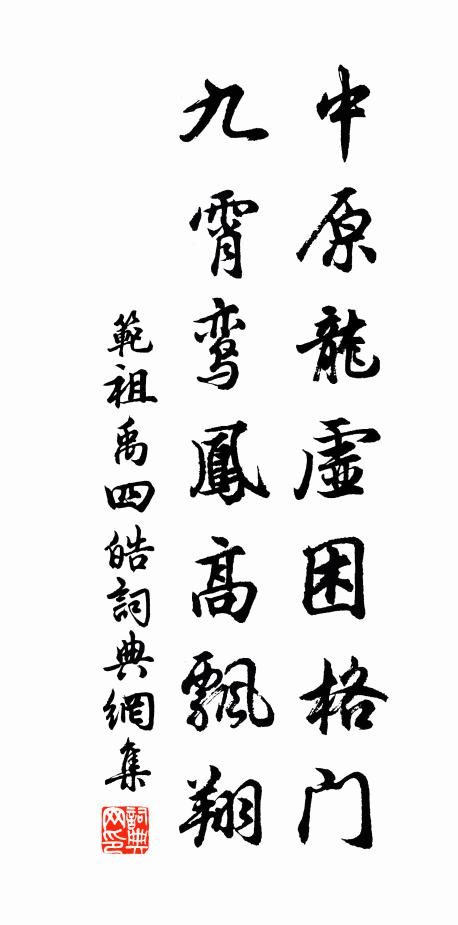 中原龍虛困格门
九霄鸾鳳高飄翔
範祖禹四皓詞典網集
詞典网印